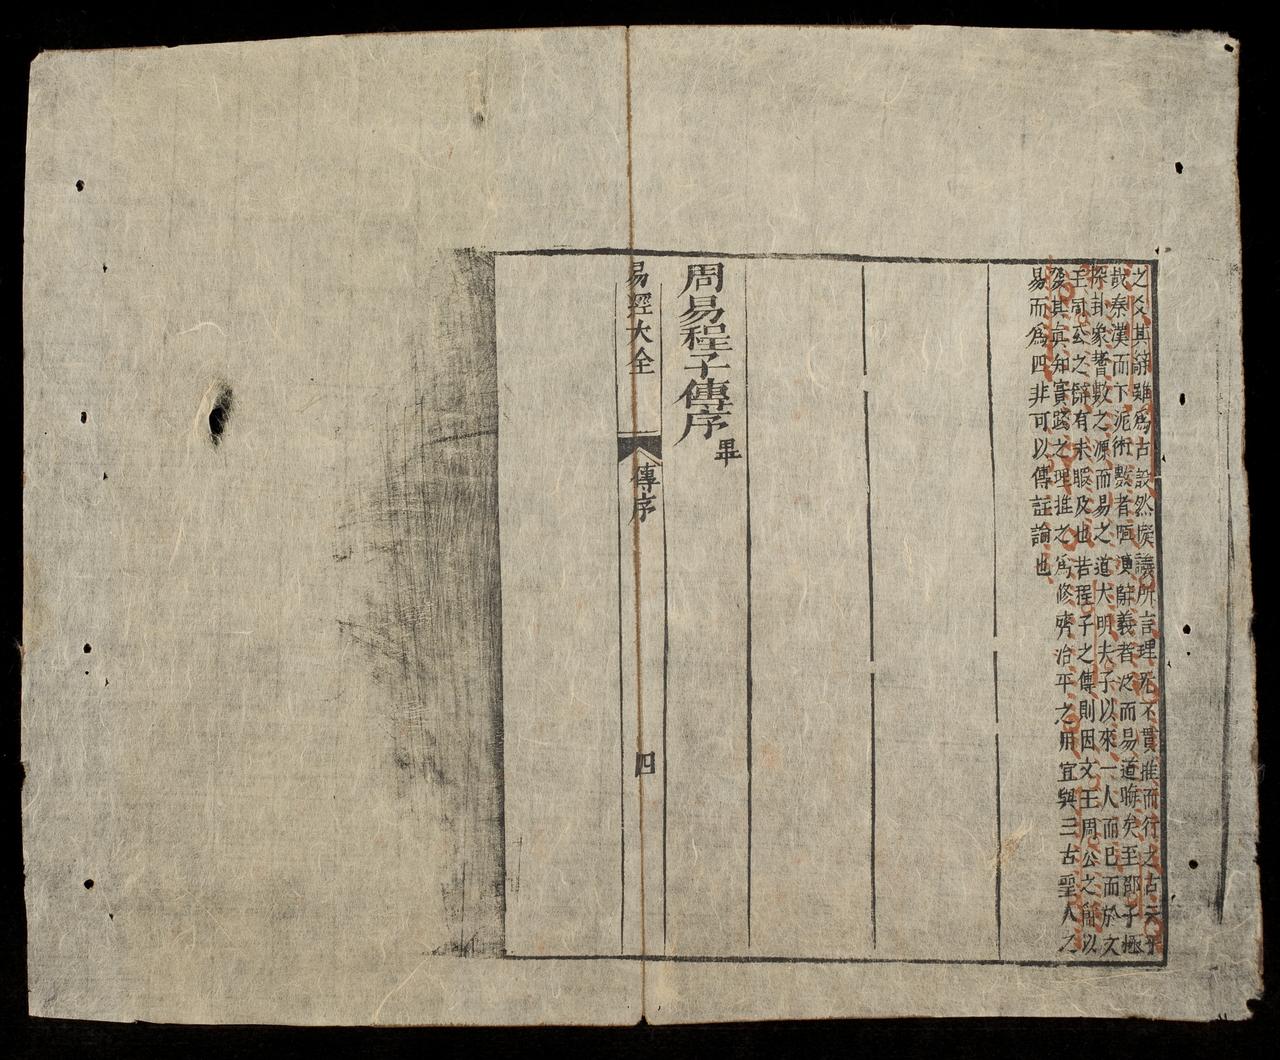 之爻其辭雖爲古設然擬議所言理无不貫推而行之古云乎
哉秦漢而下泥術數者陋演辭義者泛而易道晦矣至邵子極
探卦象蓍數之源而易之道大明夫子以來一人而已而於文
王周公之辭有未暇及也若程子之傳則因文王周公之簡以
發其眞知實踐之理推之爲修齊治平之用宜與三古聖人之
易而爲四非可以傳註論也
周易程子傳序畢
易經大全
傳序
四